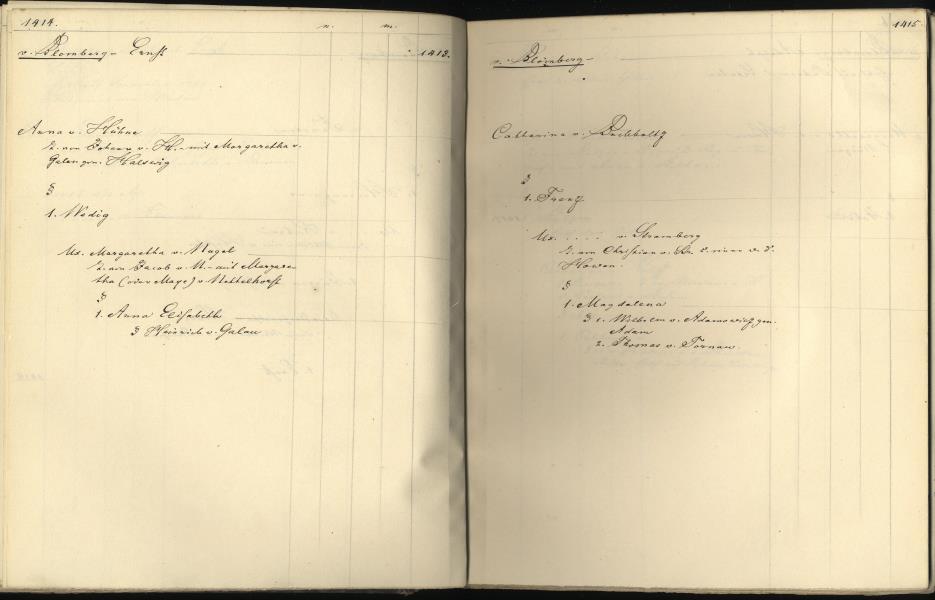 1414.
n. m.
v. Blomberg - Ernst 1413.
Anna v. Hühne
T. von Johann v. H. - mit Margaretha v.
Galen gen. Halswig
§
1. Wedig
Ux. Margaretha v. Nagel
T. von Jacob v. N. - mit Margare-
tha (oder Maye) v Nettelhorst
§
1. Anna Elisabeth
§ Heinrich v. Galau
1415.
v. Blomberg -
Catharina v. Buchholtz
§
1. Franz
Ux. . . . . v. Stromberg
T. von Christian v. Str. T. einer v. d.
Howen.
§
1. Magdalena
§ 1. Wilhelm v. Adamowicz gen.
Adam
2. Thomas v. Tornauw.